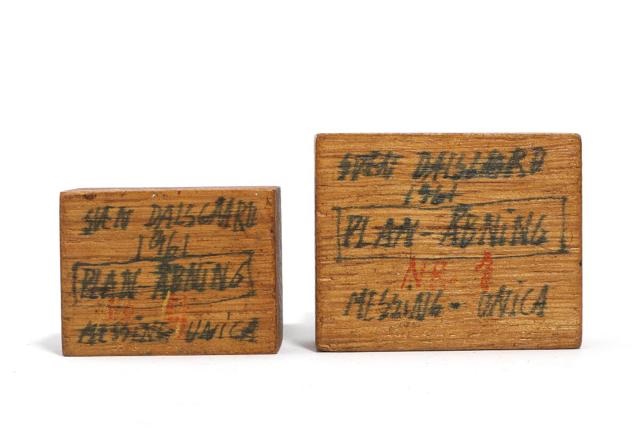 SVEN DALSGÅRD
1961
PLAN ÅBNING
MESSING UNICA
SVEN DALSGÅRD
1961
PLAN-ÅBNING
NR.
MESSING - UNICA